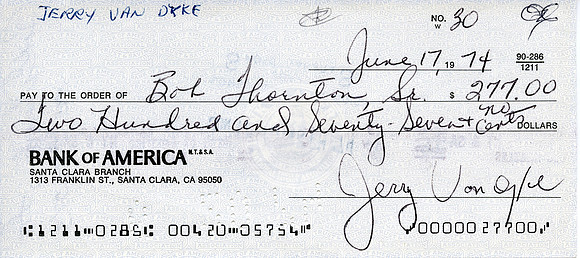 JERRY VAN DYKE
NO. 30
W
June 17, 19 74
90-286
1211
PAY TO THE ORDER OF Bob Thornton, Sr. $ 277.00
Two Hundred and Seventy-Seven + no Cents DOLLARS
BANK OF AMERICA N.T.&S.A.
SANTA CLARA BRANCH
1313 FRANKLIN ST., SANTA CLARA, CA 95050
Jerry Van Dyke
1211 0286 00420 05754 0000027700